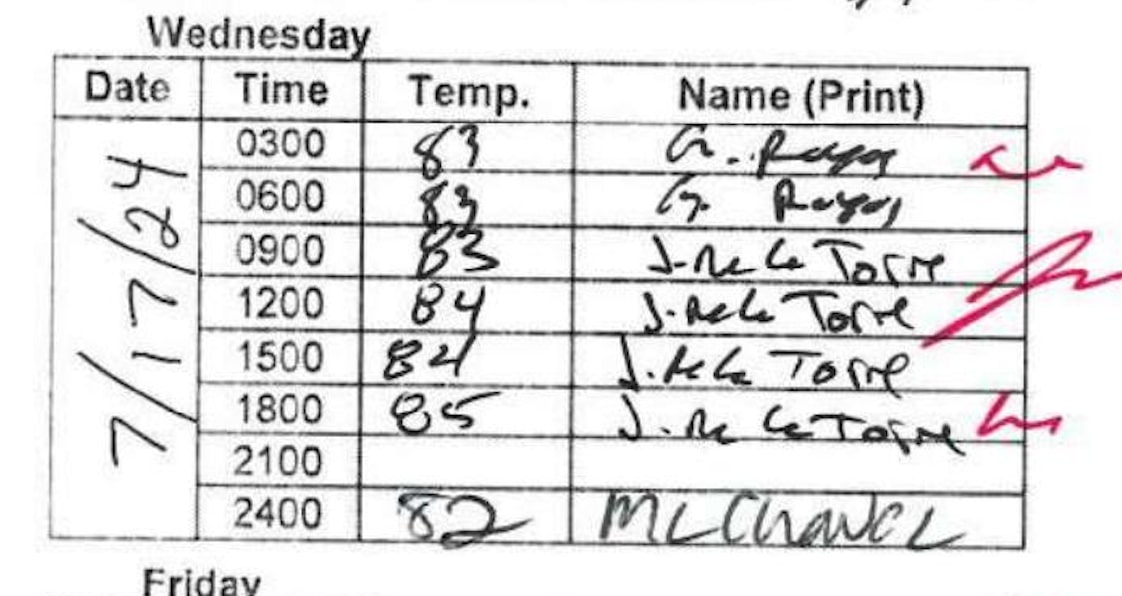 Wednesday
Date Time Temp. Name (Print)
7/17/24
0300 83 G.
0600 83 G.
0900 83 J. De La Torre
1200 84 J. De La Torre
1500 84 J. De La Torre
1800 85 J. De La Torre
2100
2400 82
Friday